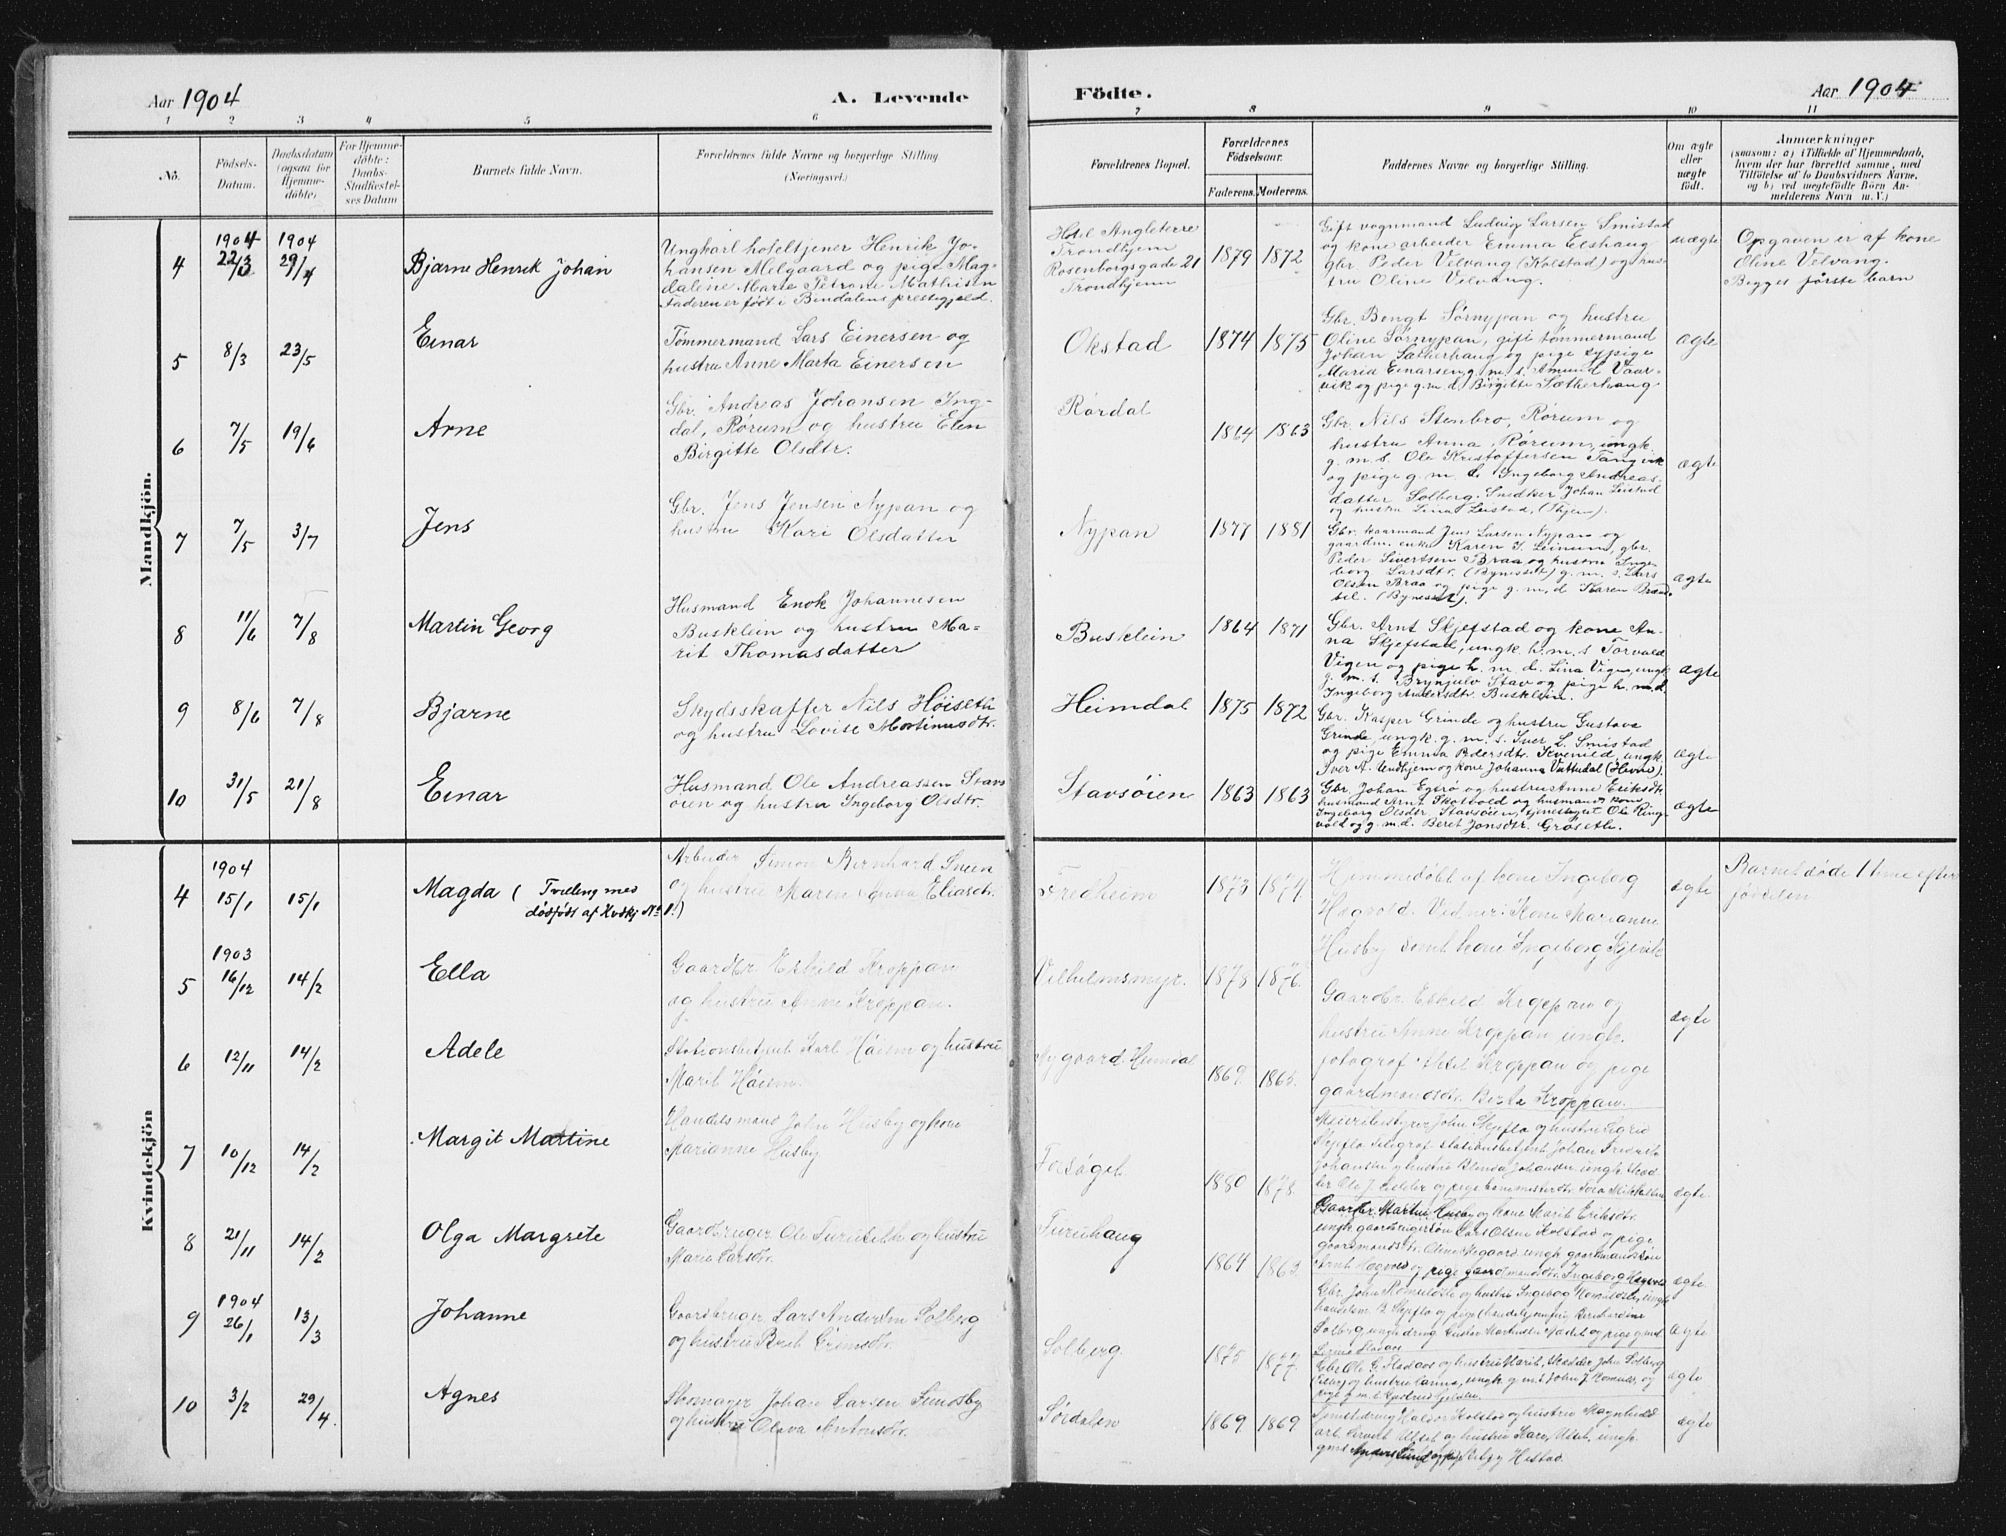 Aar 1904
A. Levende
Födte.
Aar 1904
1 2 3 4 5 6 7 8 9 10 11
No.
Födsels-
Datum.
Daabsdatum
(ogsaa for
Hjemme-
döbte)
For Hjemme-
döbte:
Daabs-
Stadfæstel-
ses Datum
Barnets fulde Navn.
Forældrenes fulde Navne og borgerlige Stilling
(Næringsvei.)
Forældrenes Bopæl.
Forældrenes
Födselsaar.
Faderens. Moderens.
Faddernes Navne og borgerlige Stilling.
Om ægte
eller
uægte
födt.
Anmærkninger
(saasom: a) i Tilfælde af Hjemmedaab,
hvem der har forrettet samme, med
Tilföielse af to Daabsvidners Navne.
og b) ved uægtefödte Börn An-
melderens Navn m. V.)
Mandkjön.
4
1904
22/3
1904
29/4
Bjarne Henrik Johan
Ungkarl hoteltjener Henrik Jo-
hansen Melgaard og pige Mag-
dalene Marie Petrone Mathisen
Faderen er født i Bindalens prestegjeld.
Hotel Angleterre
Trondhjem
Rosenborgsgade 21
Trondhjem
1879 1872
Gift vognmand Ludvig Larsen Smistad
og kone arbeider Emma Eeshaug
gbr. Peder Vilvang (Kolstad) og hus-
tru Oline Vilvang.
uægte
Opgaven er af kone
Oline Vilvang.
Begges første barn
5
8/3
23/5
Einar
Tømmermand Lars Einersen og
hustru Anne Marta Einersen
Okstad
1874 1875
Gbr. Bengt Sørnypan og hustru
Oline Sørnypan, gift tømmermand
Johan Sætherhaug og pige sypige
Maria Einarsen, g. m. s. Amund Vaar-
vik og pige g. m. d. Birgitte Sætherhaug
ægte
6
7/5
19/6
Arne
Gbr. Andreas Johansen Ing-
dal, Rørum og hustru Elen
Birgitte Olsdtr.
Rørdal
1864 1863
Gbr. Nils Stenbro, Rørum og
hustru Anna Rørum, ungk.
g. m. s. Ole Kristoffersen Tangvik
og pige g. m. d. Ingeborg Andreas-
datter Solberg. Snedker Johan Leistad
og hustru Lina Leistad, (Tkjem).
ægte
7
7/5
3/7
Jens
Gbr. Jens Jensen Nypan og
hustru Kari Olsdatter
Nypan
1877 1881
Gbr. kaarmand Jens Larsen Nypan og
gaardm. enke Karen J. Leinum, gbr.
Peder Sivertsen Braa og hustru Inge-
borg Larsdtr. (Bynesset) g. m. s. Lars
Olsen Braa og pige g. m. d. Karen
(Bynesset).
ægte
8
11/6
7/8
Martin Georg
Husmand Enok Johannesen
Busklein og hustru Ma-
rit Thomasdatter
Busklein
1864 1871
Gbr. Arnt Skjefstad og kone An-
na Skjefstad, ungk. h. m. s. Torvald
Vigen og pige h. m. d. Lina Vigen, ungk.
g. m. s. Brynjulv Stav og pige h. m. d.
Ingeborg Andersdtr. Busklein.
ægte
9
8/6
7/8
Bjarne
Skydsskaffer Nils Høiseth
og hustru Lovise Martinusdtr.
Heimdal
1875 1872
Gbr. Kasper Grinde og hustru Gustava
Grinde, ungk. g. m. s. Iver L. Smistad
og pige Emma Pedersdtr. Kvenild, ungk.
Iver A. Undhjem og kone Johanna Vuttudal (Hevne).
ægte
10
31/5
21/8
Einar
Husmand Ole Andreassen Stavs-
øien og hustru Ingeborg Olsdtr.
Stavsøien
1863 1863
Gbr Johan Egsrø og hustru Anne Eriksdtr.
husmand Arnt Skotvold og husmands kone
Ingeborg Olsdtr. Stavsøien, tjenestegut Ole Ring-
vold og g. m. d. Beret Jonsdtr. Grøseth.
ægte
Kvindekjön
4
1904
15/1
15/1
Magda ( Tvilling med
dødfødt af Kvdkj No 1.)
Arbeider Simon Bernhard Sneen
og hustru Maren Anna Eliasdtr.
Fredheim
1873 1874
Hjemmedøbt af kone Ingeborg
Hagvold. Vidner: Kone Marianne
Husby samt kone Ingeborg Kjelvik
ægte
Barnet døde 1 time efter
fødselen
5
1903
16/12
14/2
Ella
Gaardbr. Eskild Kroppan
og hustru Anne Kroppan.
Vilhelmsmyr.
1878 1876.
Gaardbr. Eskild Kroppan og
hustru Anne Kroppan ungk.
fotograf Kroppan og pige
gaardmandsdtr. Berta Kroppan.
ægte
6
12/11
14/2
Adele
Stationsbetjent Karl Høiem og hustru
Marit Høiem.
Nygaard Heimdal
1869 1865.
Meieribestyrer John Skjeflo og hustru Sigrid
Skjeflo telegraf stationsbetjent Johan Fredrik
Johansen og hustru Blenda Johansen ungk. skræd
der Ole J. og pige banemesterdtr. Tora Mikkelsen
ægte.
7
10/12
14/2
Margit Martine
Handelsmand John Husby og kone
Marianne Husby
Forsøget
1880 1878.
Gaardbr. Martin Husby og kone Marit Eriksdtr.
ungk gaardbrugersøn Lars Olsen Kolstad og pige
gaardmandsdtr. Oline Aagaard ungk. gaardmandssøn
Arnt Hagvold og pige gaardmandsdtr. Ingeborg Hagvold
ægte
8
21/11
14/2
Olga Margrete
Gaardbruger Ole Furuseth og hustru
Maria Larsdtr.
Furuhaug
1864 1863.
Gbr. John Romulslie og hustru Ingebog Romulslie, ungk
handelsm. B. Skjeflo og pige
Solberg ungk dreng Gustav og pige gmd
ægte
9
1904
26/1
13/3
Johanne
Gaardbruger Lars Andersen Solberg
og hustru Brit Grimsdtr.
Solberg
1875 1877.
Gbr Ole G. Fladaas og hustru Marit, skrædder John Solberg
og hustru Hanna, ungk g. m. s. John J. Romuls, og
pige g. m. d.
ægte
10
3/2
29/4.
Agnes
Skomager Johan Larsen Sundsby
og hustru Olava Antonsdtr.
Sørdalen
1869 1869
Tjenestedreng Haldor Kolstad og hustru Magnhild
arb. Sivert Udset og hustru Kare Udset, ungk.
gms Anders Lund og pige Hestad.
ægte